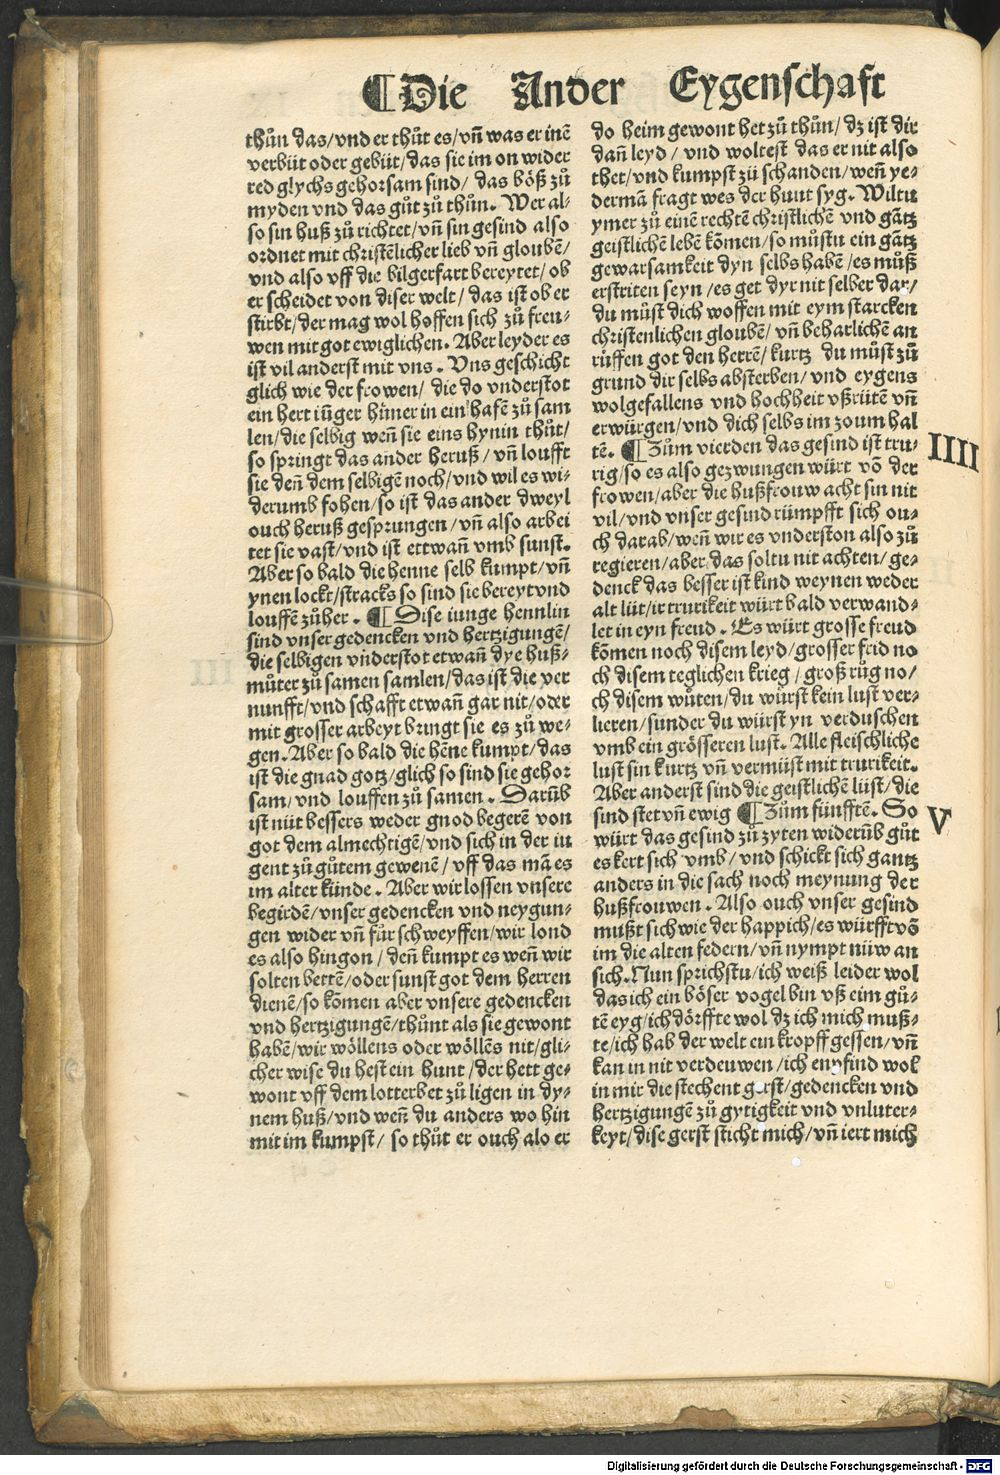 ¶Die Ander Eygenschaft
thůn das/vnd er thůt es/vñ was er inē
verbüt oder gebüt/das sie im on wider
red glychs gehorsam sind/ das böß zů
myden vnd das gůt zů thůn. Wer al⸗
so sin huß zů richtet/vñ sin gesind also
ordnet mit christēlicher lieb vñ gloubē/
vnd also vff die bilgerfart bereytet/ ob
er scheidet von diser welt/ das ist ob er
stirbt/der mag wol hoffen sich zů freu⸗
wen mit got ewiglichen. Aber leyder es
ist vil anderst mit vns. Vns geschicht
glich wie der frowen/ die do vnderstot
ein hert iūger hüner in ein hafē zů sam
len/die selbig weñ sie eins hynin thůt/
so springt das ander heruß/ vñ loufft
sie deñ dem selbigē noch/vnd wil es wi⸗
derumb fohen/so ist das ander dweyl
ouch heruß gesprungen/vñ also arbei
tet sie vast/vnd ist ettwañ vmb sunst.
Aber so bald die henne selb kumpt/vñ
ynen lockt/stracks so sind sie bereyt vnd
louffē zůher. ¶ Dise iunge hennlin
sind vnser gedencken vnd hertzigungē/
die selbigen vnderstot etwañ dye huß⸗
můter zů samen samlen/das ist die ver
nunfft/vnd schafft etwañ gar nit/oder
mit grosser arbeyt bringt sie es zů we⸗
gen. Aber so bald die hēne kumpt/das
ist die gnad gotz/glich so sind sie gehor
sam/vnd louffen zů samen. Darūb
ist nüt bessers weder gnod begerē von
got dem almechtigē/vnd sich in der iu
gent zů gůtem gewenē/ vff das mā es
im alter künde. Aber wir lossen vnsere
begirdē/vnser gedencken vnd neygun⸗
gen wider vñ für schweyffen/wir lond
es also hingon/ deñ kumpt es weñ wir
solten bettē/oder sunst got dem herren
dienē/so kōmen aber vnsere gedencken
vnd hertzigungē/thůnt als sie gewont
habē/wir wöllens oder wöllēs nit/gli⸗
cher wise du hest ein hunt/der hett ge⸗
wont vff dem lotterbet zů ligen in dy⸗
nem huß/vnd weñ du anders wo hin
mit im kumpst/ so thůt er ouch alo er
do heim gewont het zů thůn/ dz ist dir
dañ leyd/ vnd woltest das er nit also
thet/vnd kumpst zů schanden/weñ ye⸗
dermā fragt wes der hunt syg. Wiltu
ymer zů einē rechtē christlichē vnd gātz
geistlichē lebē kōmen/so můstu ein gātz
gewarsamkeit dyn selbs habē/es můß
erstriten seyn/es get dyr nit selber dar/
du můst dich woffen mit eym starcken
christenlichen gloubē/ vñ beharlichē an
rüffen got den herrē/ kurtz du můst zů
grund dir selbs absterben/vnd eygens
wolgefallens vnd hochheit vßrütē vñ
erwürgen/vnd dich selbs im zoum hal
tē. ¶Zům vierden das gesind ist tru⸗
IIII
rig/so es also gezwungen würt vō der
frowen/aber die hußfrouw acht sin nit
vil/vnd vnser gesind rümpfft sich ou⸗
ch darab/weñ wir es vnderston also zů
regieren/aber das soltu nit achten/ ge⸗
denck das besser ist kind weynen weder
alt lüt/ir trurikeit würt bald verwand⸗
let in eyn freud. Es würt grosse freud
kōmen noch disem leyd/grosser frid no
ch disem teglichen krieg/groß růg no/
ch disem wüten/du würst kein lust ver⸗
lieren/sunder du würst yn verduschen
vmb ein grösseren lust. Alle fleischliche
lust sin kurtz vñ vermüst mit trurikeit.
Aber anderst sind die geistlichē lüst/die
sind stet vñ ewig ¶Zům fünfftē. So
V
würt das gesind zů zyten widerūb gůt
es kert sich vmb/ vnd schickt sich gantz
anders in die sach noch meynung der
hußfrouwen. Also ouch vnser gesind
mußt sich wie der happich/es würfft vō
im die alten federn/vñ nympt nüw an
sich. Nun sprichstu/ich weiß leider wol
das ich ein böser vogel bin vß eim gů⸗
tē eyg/ich dörffte wol dz ich mich muß⸗
te/ich hab der welt ein kropff gessen/vñ
kan in nit verdeuwen/ich enpfind wol
in mir die stechent gerst/gedencken vnd
hertzigungē zů gytigkeit vnd vnluter⸗
keyt/dise gerst sticht mich/vñ iert mich
Digitalisierung gefördert durch die Deutsche Forschungsgemeinschaft - DFG